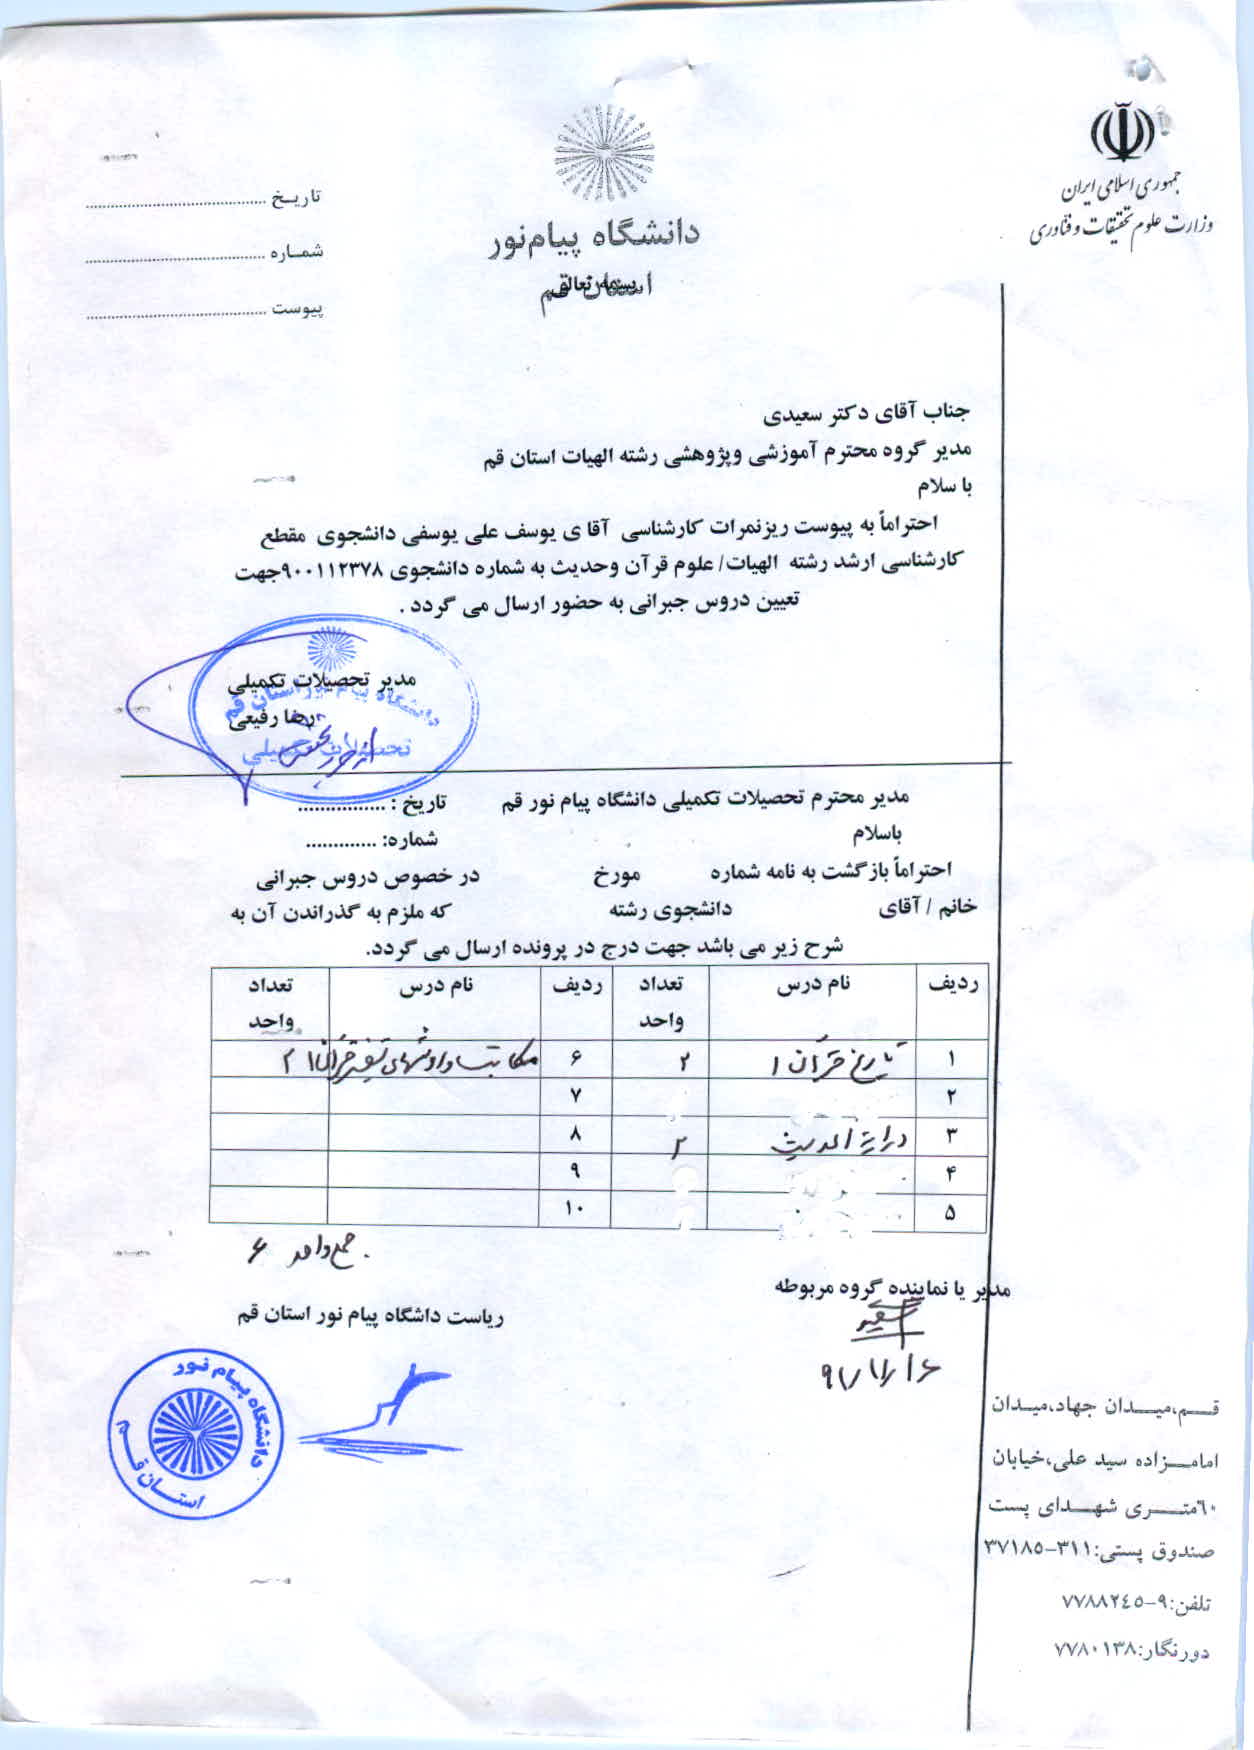 جمهوری اسلامی ایران
وزارت علوم تحقیقات و فناوری
دانشگاه پیام‌نور
استان قم
بسمه تعالی
تاریـخ ..........................................
شمـاره ..........................................
پیوست ..........................................
جناب آقای دکتر سعیدی
مدیر گروه محترم آموزشی وپژوهشی رشته الهیات استان قم
با سلام
احتراماً به پیوست ریزنمرات کارشناسی آقا ی یوسف علی یوسفی دانشجوی مقطع
کارشناسی ارشد رشته الهیات/ علوم قرآن وحدیث به شماره دانشجوی ۹۰۰۱۱۲۳۷۸جهت
تعیین دروس جبرانی به حضور ارسال می گردد .
مدیر تحصیلات تکمیلی
رضا رفیعی
دانشگاه پیام نور استان قم
تحصیلات تکمیلی
مدیر محترم تحصیلات تکمیلی دانشگاه پیام نور قم تاریخ : ................
باسلام شماره: .............
احتراماً بازگشت به نامه شماره مورخ در خصوص دروس جبرانی
خانم / آقای دانشجوی رشته که ملزم به گذراندن آن به
شرح زیر می باشد جهت درج در پرونده ارسال می گردد.
ردیف نام درس تعداد واحد ردیف نام درس تعداد واحد
۱ تاریخ قرآن ۱ ۲ ۶ مکاتب و روشهای تفسیر قرآن ۱ ۲
۲ ۷
۳ درایة الحدیث ۲ ۸
۴ ۹
۵ ۱۰
جمع واحد ۶
مدیر یا نماینده گروه مربوطه
ریاست داشگاه پیام نور استان قم
دانشگاه پیام نور
استــان قــم
قــم،میــدان جهاد،میـدان
امامــزاده سید علی،خیابان
٦٠متــری شهـدای پست
صندوق پستی:۳۱۱-۳۷۱۸٥
تلفن:۹-۷۷۸۸۲٤٥
دورنگار:۷۷۸۰۱۳۸